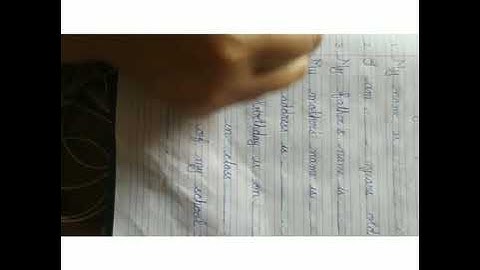 1. My name is
2. I am . . years old
3. My father's name is
My mother's name is
address is
Birthday is on
in class
of my school